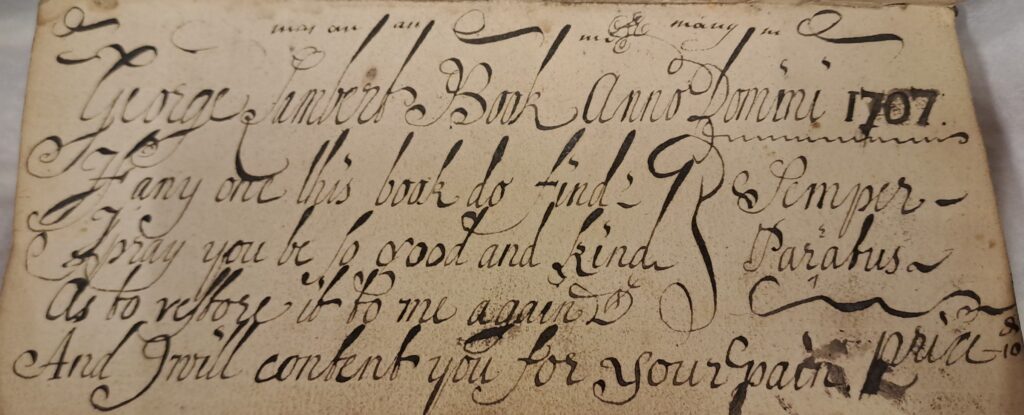 man an an many m
George Limbert Book Anno Domini 1707.
If any one this book do find
I pray you be so good and kind
As to restore it to me again
And I will content you for your pain
Semper
Paratus
price